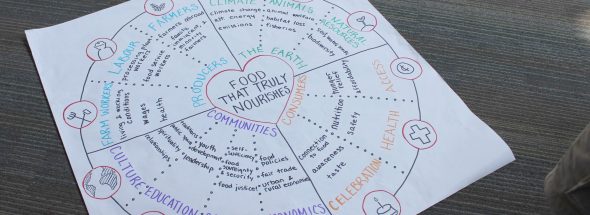 FOOD
THAT TRULY
NOURISHES
PRODUCERS
THE EARTH
CONSUMERS
COMMUNITIES
FARM WORKERS
LABOUR
FARMERS
CLIMATE
ANIMALS
NATURAL
ACCESS
HEALTH
CELEBRATION
CULTURE
EDUCATION
ECONOMICS
living & working
conditions
wages
health
processing plant
workers
food service
workers
farmers abroad
family
farmers
climate change
alt. energy
emissions
animal welfare
habitat loss
fisheries
biodiversity
affordability
Nutrition
safety
connection
to food
awareness
taste
traditions
spirituality
relationships
youth
development
leadership
self-
sufficiency
food
sovereignty
& security
food justice
food
policies
fair trade
urban &
rural economies